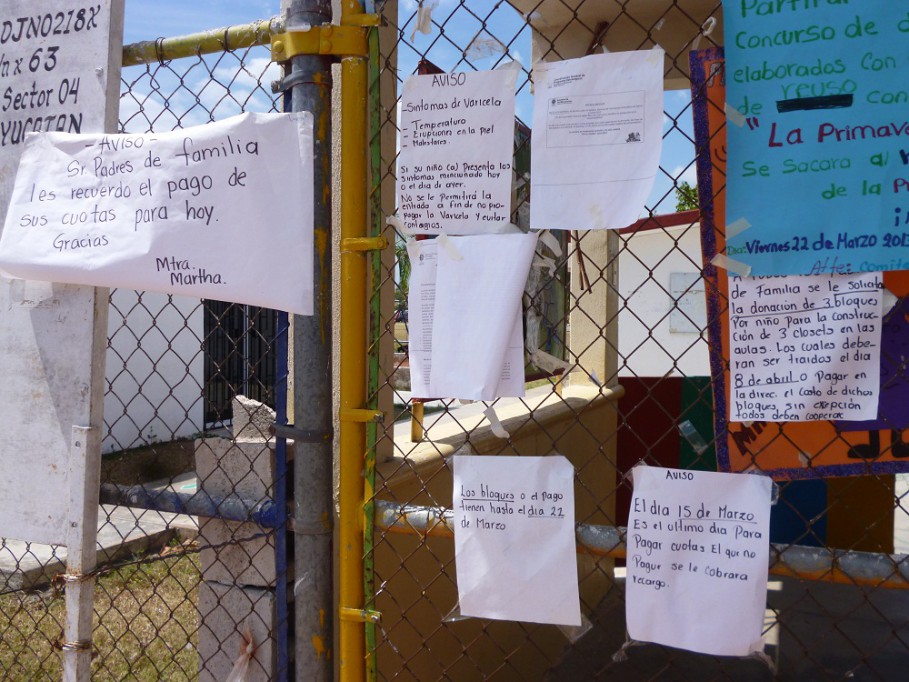 DJN0218X
x 63
Sector 04
YUCATAN
-AVISO-
Sr. Padres de familia
les recuerdo el pago de
sus cuotas para hoy.
Gracias
Mtra.
Martha.
AVISO
-Sintomas de Varicela
- Temperatura
- Erupciones en la Piel
- Malestares.
Si su niño (a) Presenta los
sintomas mencionado hoy
o el dia de ayer.
No se le Permitirá la
entrada a fin de no pro-
pagar la Varicela y evitar
contagios.
Partira
Concurso de d
elaborados con
de reuso con
"La Primave
Se Sacara al
de la P
Dia: Viernes 22 de Marzo 2013
Atte: comite
de Familia se le Solicita
la donación de 3 bloques
Por niño Para la construc-
ción de 3 closets en las
aulas. Los cuales debe-
ran ser traidos el dia
8 de abril o Pagar en
la direc. el costo de dichos
bloques, sin exepción
todos deben cooperar
Los bloques o el Pago
tienen hasta el dia 22
de Marzo
AVISO
El dia 15 de Marzo
Es el ultimo dia Para
Pagar cuotas El que no
Pague se le Cobrara
recargo.